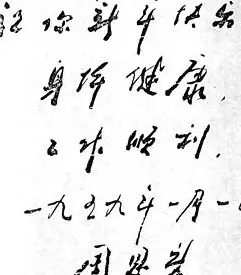 祝你新年快乐
身体健康,
工作顺利.
一九五九年一月一
周恩来